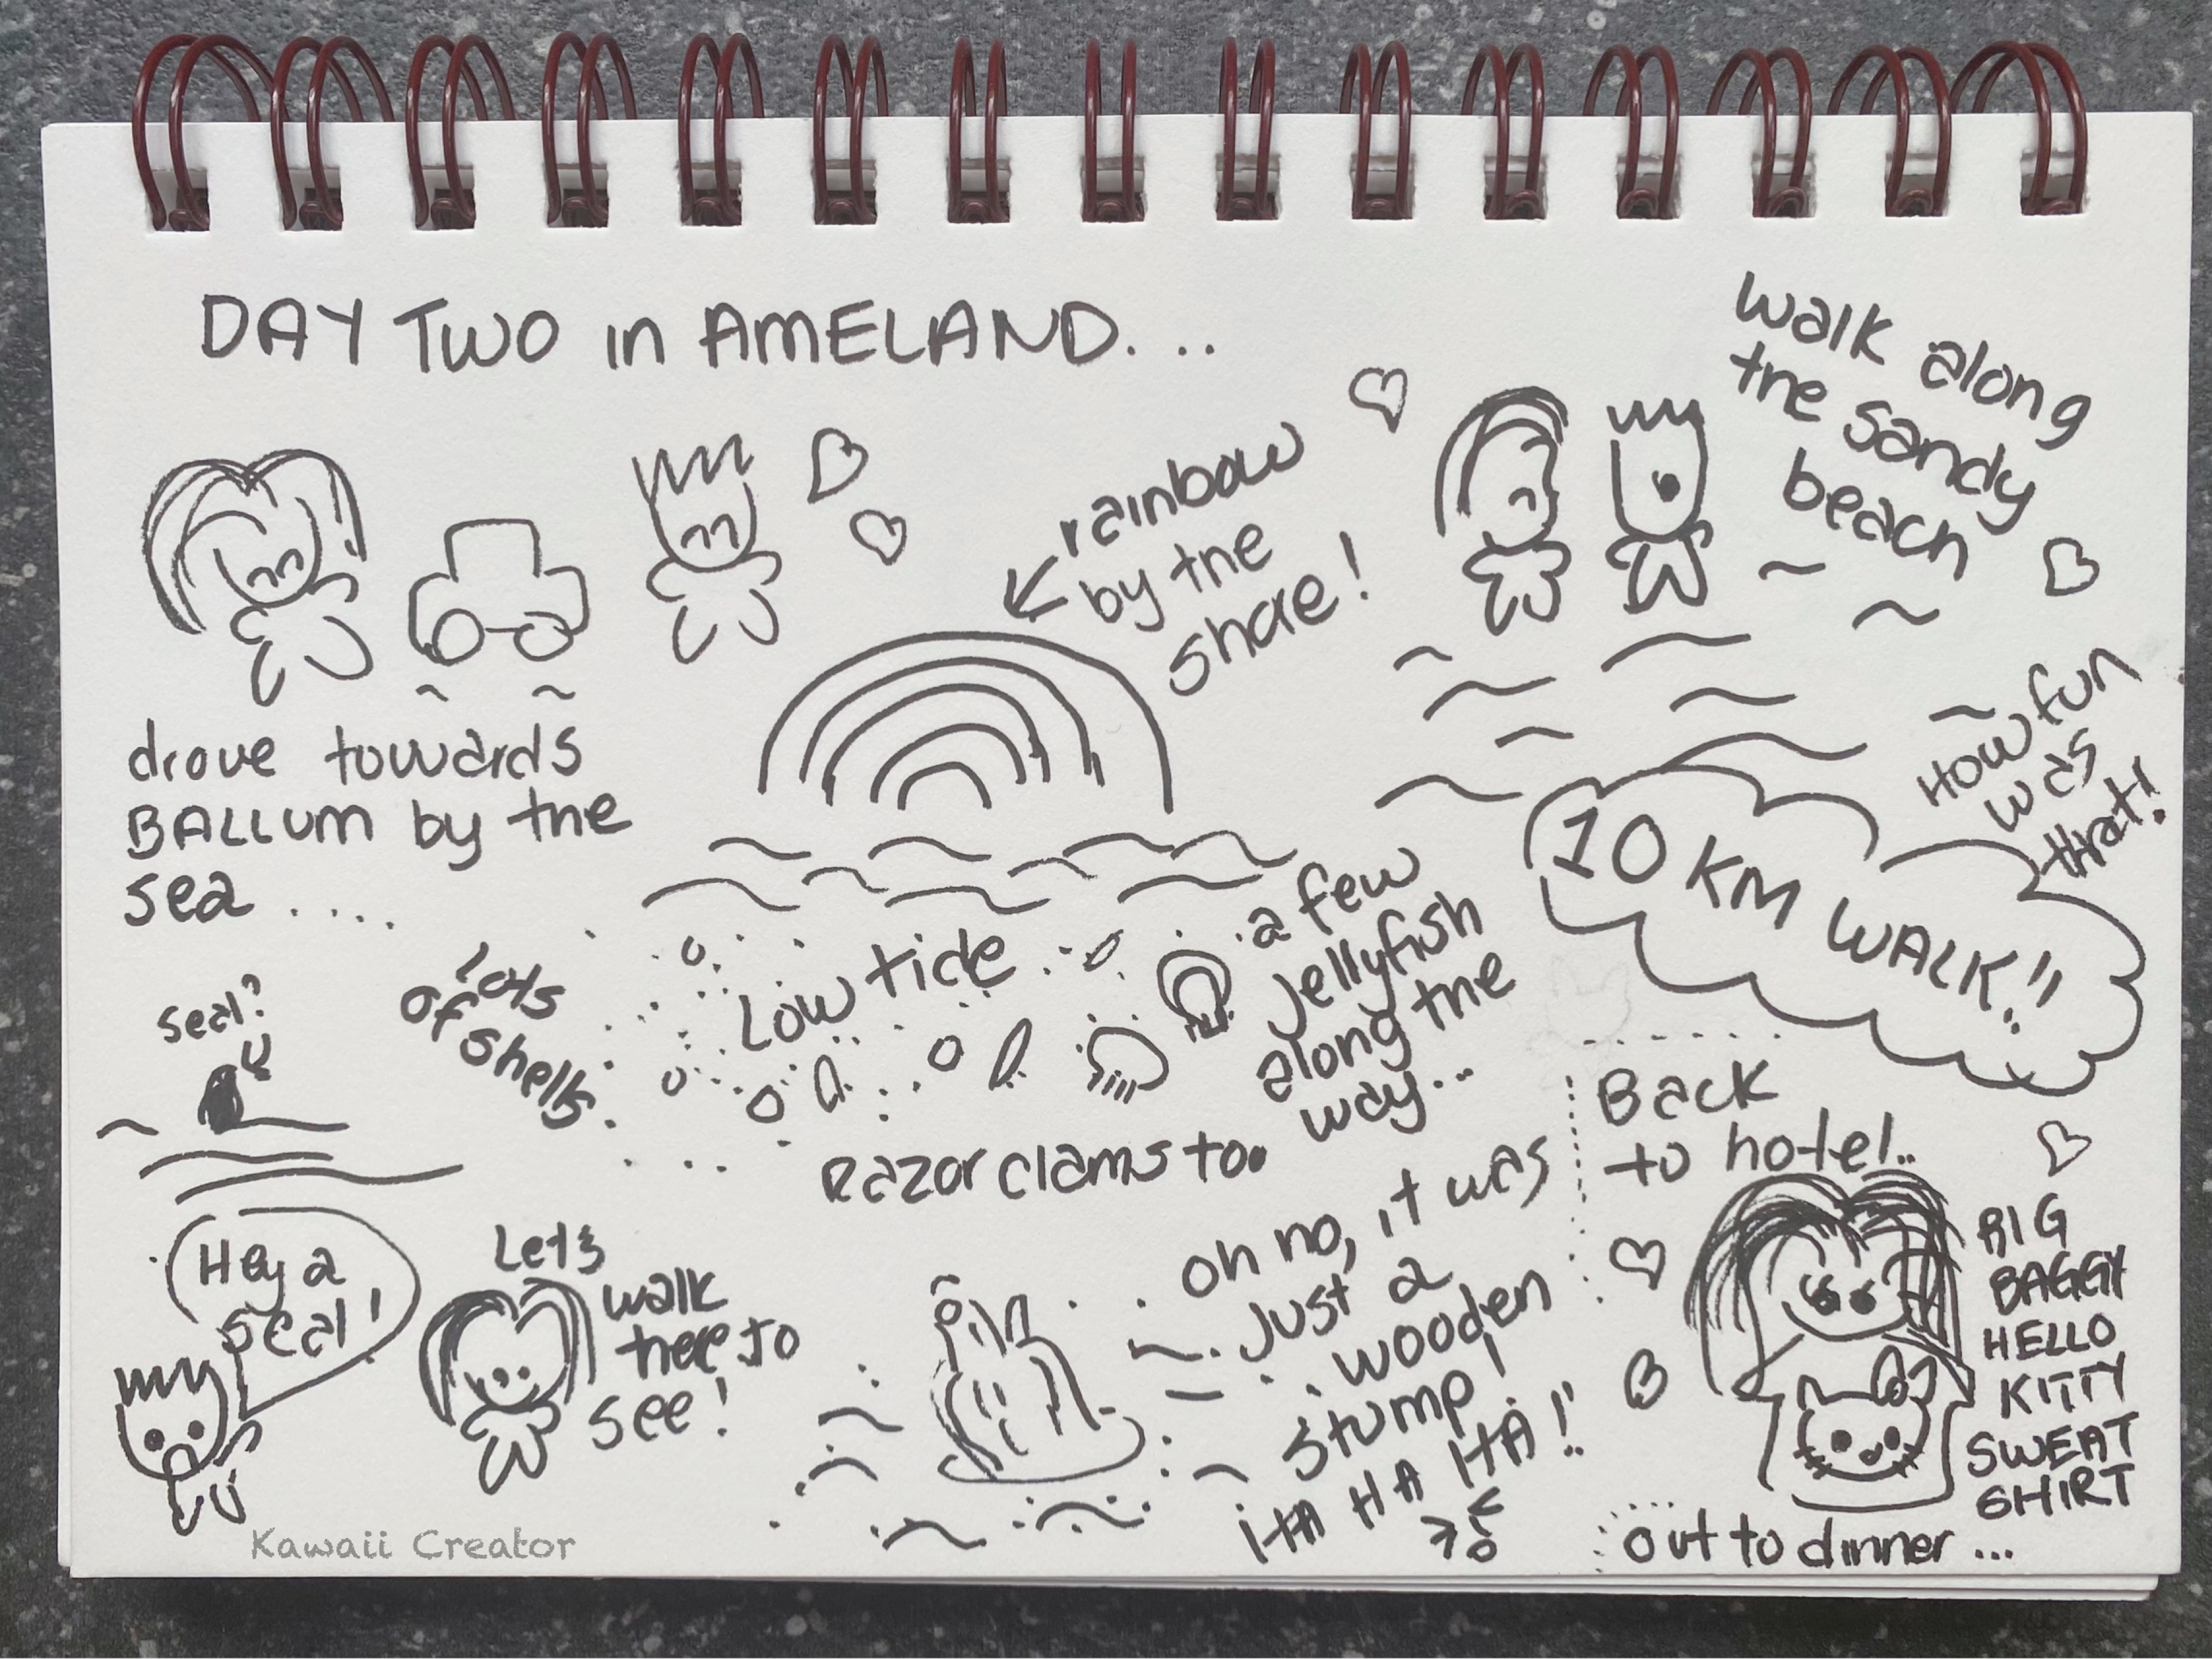 DAY TWO in AMELAND...
drove towards
BALLUM by the
sea ....
rainbow
by the
shore!
walk along
the sandy
beach
How fun
was
that!
10 KM WALK!!
Low tide
Lots
of shells
a few
jellyfish
along the
way...
Razor clams too
seal?
Hey a
seal!
Lets
walk
there to
see!
oh no, it was
just a
wooden
stump!
HA HA HA!!
Back
to hotel..
BIG
BAGGY
HELLO
KITTY
SWEAT
SHIRT
out to dinner...
Kawaii Creator